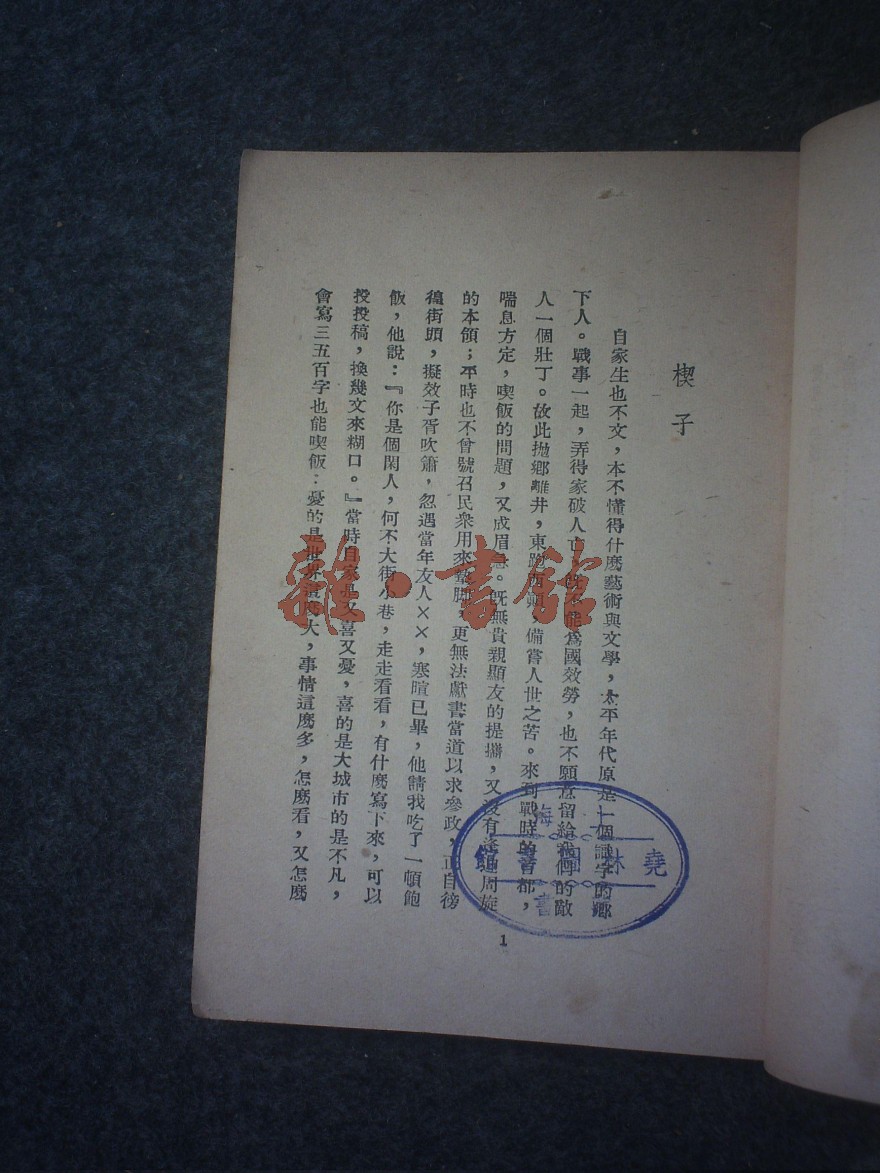 楔子
自家生也不文，本不懂得什麼藝術與文學，太平年代原是一個識字的鄉
下人。戰事一起，弄得家破人亡，既不能爲國效勞，也不願意留給我們的敵
人一個壯丁。故此拋鄉離井，東跑西顚，備嘗人世之苦。來到戰時的首都，
喘息方定，喫飯的問題，又成眉急。既無貴親顯友的提攜，又沒有逢迎周旋
的本領；平時也不曾號召民衆用來墊脚，更無法獻書當道以求參政，正自徬
徨街頭，擬效子胥吹簫，忽遇當年友人××，寒暄已畢，他請我吃了一頓飽
飯，他說：『你是個閑人，何不大街小巷，走走看看，有什麼寫下來，可以
投投稿，換幾文來糊口。』當時自家是又喜又憂，喜的是大城市的是不凡，
會寫三五百字也能喫飯：憂的是世界這麼大，事情這麼多，怎麼看，又怎麼
1
堯林圖書館
雜·書館